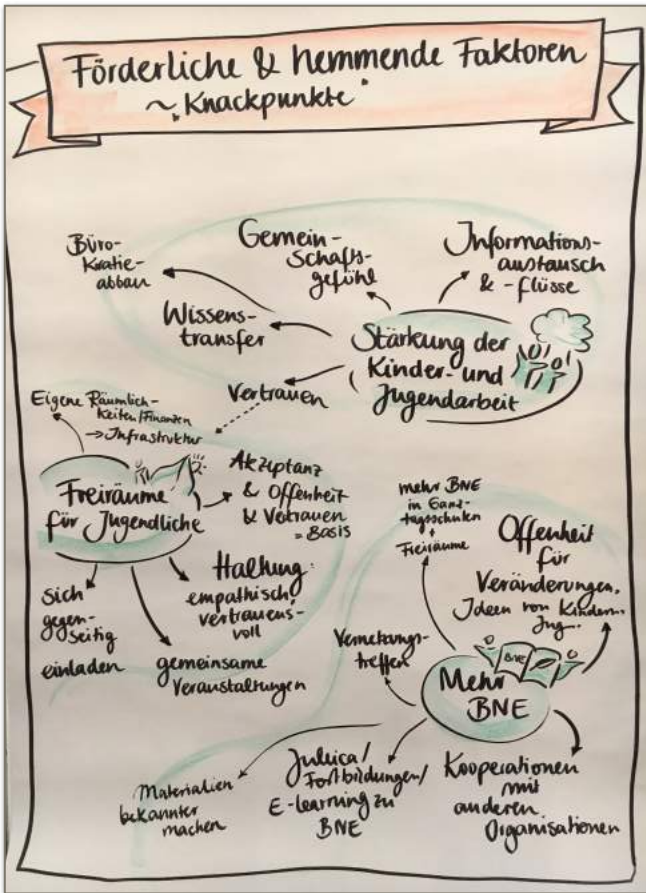 Förderliche & hemmende Faktoren
~ Knackpunkte
Büro-
kratie-
abbau
Gemein-
schafts-
gefühl
Informations-
austausch
& -flüsse
Wissens-
transfer
Stärkung der
Kinder- und
Jugendarbeit
Vertrauen
Eigene Räumlich-
keiten/Finanzen
→ Infrastruktur
Freiräume
für Jugendliche
Akzeptanz
& Offenheit
& Vertrauen
= Basis
Haltung:
empathisch,
vertrauens-
voll
sich
gegen-
seitig
einladen
gemeinsame
Veranstaltungen
mehr BNE
in Ganz-
tagsschulen
+
Freiräume
Offenheit
für
Veränderungen,
Ideen von Kindern,
Jug...
Vernetzungs-
treffen
BNE
Mehr
BNE
Materialien
bekannter
machen
Juleica/
Fortbildungen/
E-learning zu
BNE
Kooperationen
mit
anderen
Organisationen